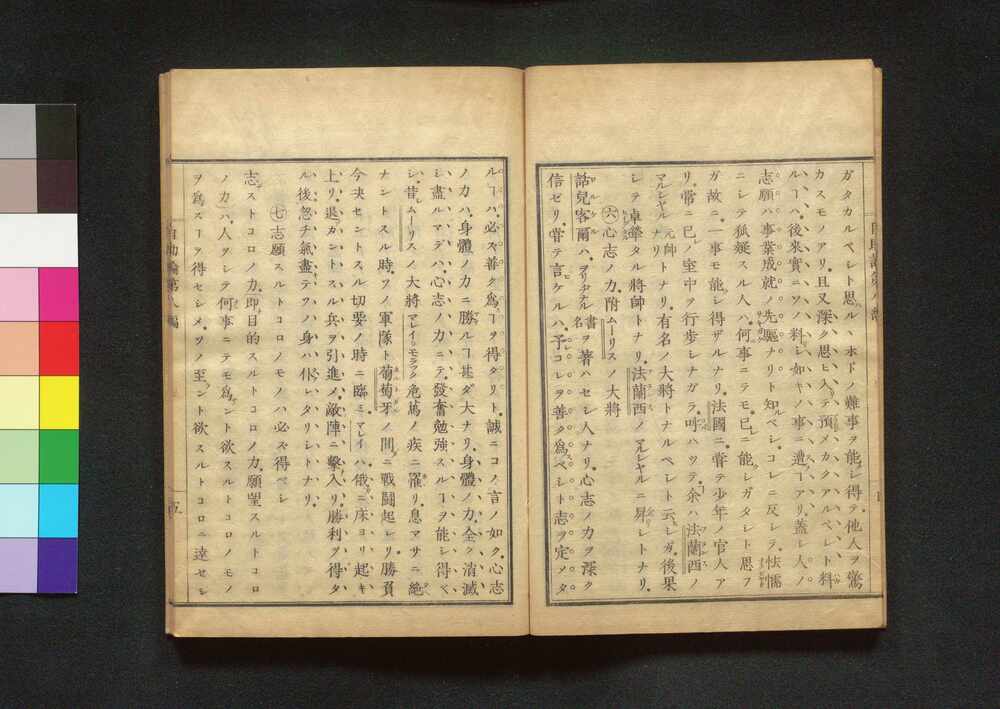 ガタカルベシト思ヘル、ホドノ難事ヲ能シ得テ、他人ヲ驚
カスモノアリ、且又深ク思ヒ入テ、預メカクアルベシト料
ルヿハ、後來實ニソノ料シ如キノ事ニ遭フヿアリ、蓋シ人ノ
志願ハ事業成就ノ先驅ナリト知ルベシ、コレニ反シテ怯懦
ニシテ狐疑スル人ハ、何事ニテモ、已ニ能シガタシト思フ
ガ故ニ、一事モ能シ得ザルナリ、法國ニ甞テ少年ノ官人ア
リ、常ニ己ノ室中ヲ行歩シナガラ、呼ハツテ余ハ法蘭西ノ
マルシヤル元帥トナリ、有名ノ大將トナルベシト云シガ、後果
シテ卓犖タル將帥トナリ、法蘭西ノマルシヤルニ昇レシトナリ、
㊅心志ノ力、附ムーリスノ大將
話兒客爾ハ、ヲリヂナル書名ヲ著ハセシ人ナリ、心志ノ力ヲ深ク
信ゼリ、甞テ言ケルハ、予コレヲ善ク爲スベシト志ヲ定メタ
ルヿハ、必ズ善ク爲スヿヲ得タリト、誠ニコノ言ノ如ク、心志
ノ力ハ、身體ノ力ニ勝ルヿ甚ダ大ナリ、身體ノ力、全ク消滅
シ盡ルマデハ、心志ノ力ニテ、發奮勉強スルヿヲ能シ得ベ
シ、昔ムーリスノ大將マレイ、モラツク危篤ノ疾ニ罹リ、息マサニ絶
ナントスル時、ソノ軍隊ト葡萄牙ノ間ニ戰鬪起レリ、勝負
今夬セントスル切要ノ時ニ臨ミ、マレイハ俄ニ床ヨリ起キ
上リ、退カントスル兵ヲ引進メ、敵陣ニ擊入リ、勝利ヲ得タ
ル後、忽チ氣盡テ、ソノ身ハ仆レタリシトナリ、
㊆志願スルトコロノモノハ必ズ得ベシ
志ストコロノ力、即目的スルトコロノ力、願望スルトコロ
ノ力ハ、人ヲシテ何事ニテモ爲サント欲スルトコロノモノ
ヲ爲スヿヲ得セシメ、ソノ至ラント欲スルトコロニ達セシ
自助論第八編
五